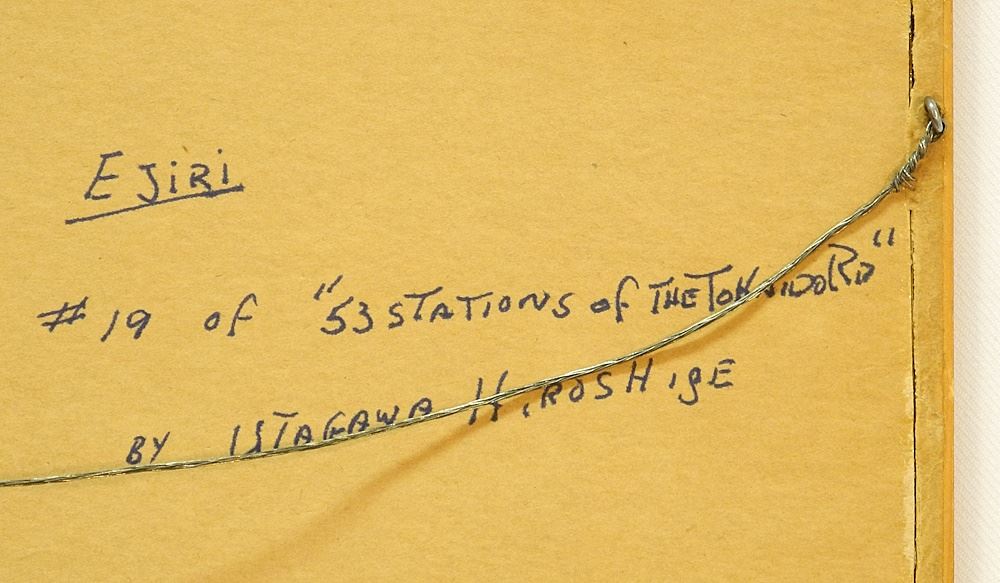 EJiRi
# 19 of "53 STATIONS of THE TOKAIDO RD"
BY ISTAGAWA HIROSHIGE